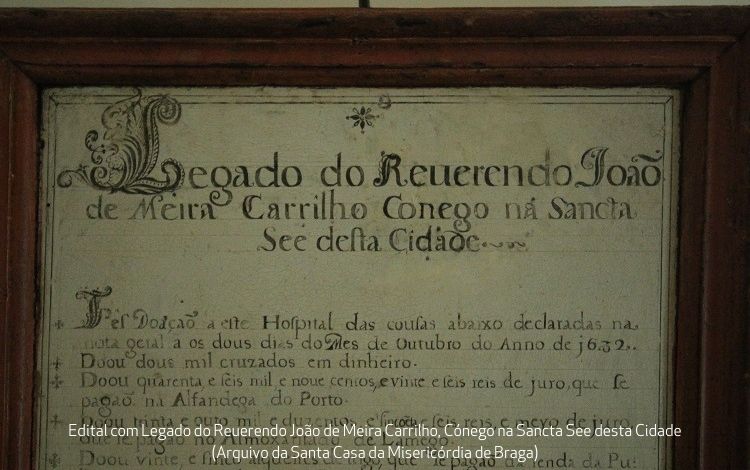 Legado do Reuerendo João
de Meira Carrilho Conego na Sancta
See desta Cidade
Fes Doação a este Hospital das cousas abaixo declaradas na
nota geral a os dous dias do Mes de Outubro do Anno de 1632.
Doou dous mil cruzados em dinheiro.
Doou quarenta e seis mil e noue centos, e vinte e seis reis de juro, que se
pagão na Alfandega do Porto.
Doou vinta e outo mil e duzentos e reis, e meyo de juro
que se pagão no Almoxarifado de Lamego.
Doou vinte, e sinco alqueires de que se pagão da renda da Pu:
Edital com Legado do Reuerendo João de Meira Carrilho, Cónego na Sancta See desta Cidade
(Arquivo da Santa Casa da Misericórdia de Braga)